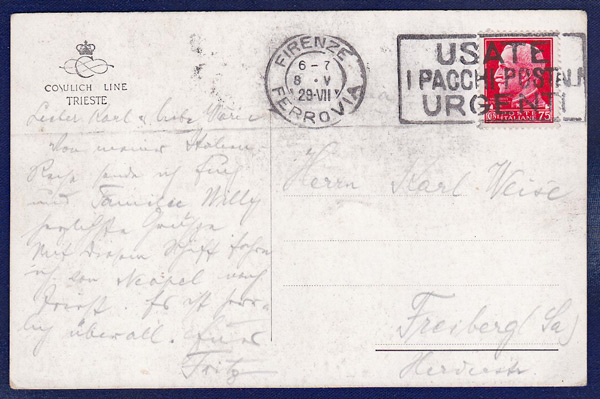 COSULICH LINE
TRIESTE
FIRENZE
6-7
8 · V
29-VII
FERROVIA
USATE
I PACCHI POSTALI
URGENTI
POSTE
ITALIANE 75
Lieber Karl & liebe
Von meiner Italien-
Reise sende ich Euch
und Familie Willy
herzlichste Grüsse
Mit diesem Schiff fahre
ich von Neapel nach
Triest. Es ist
überall. Euer
Fritz
Herrn Karl Weise
Freiberg (Sa)
Herderstr.